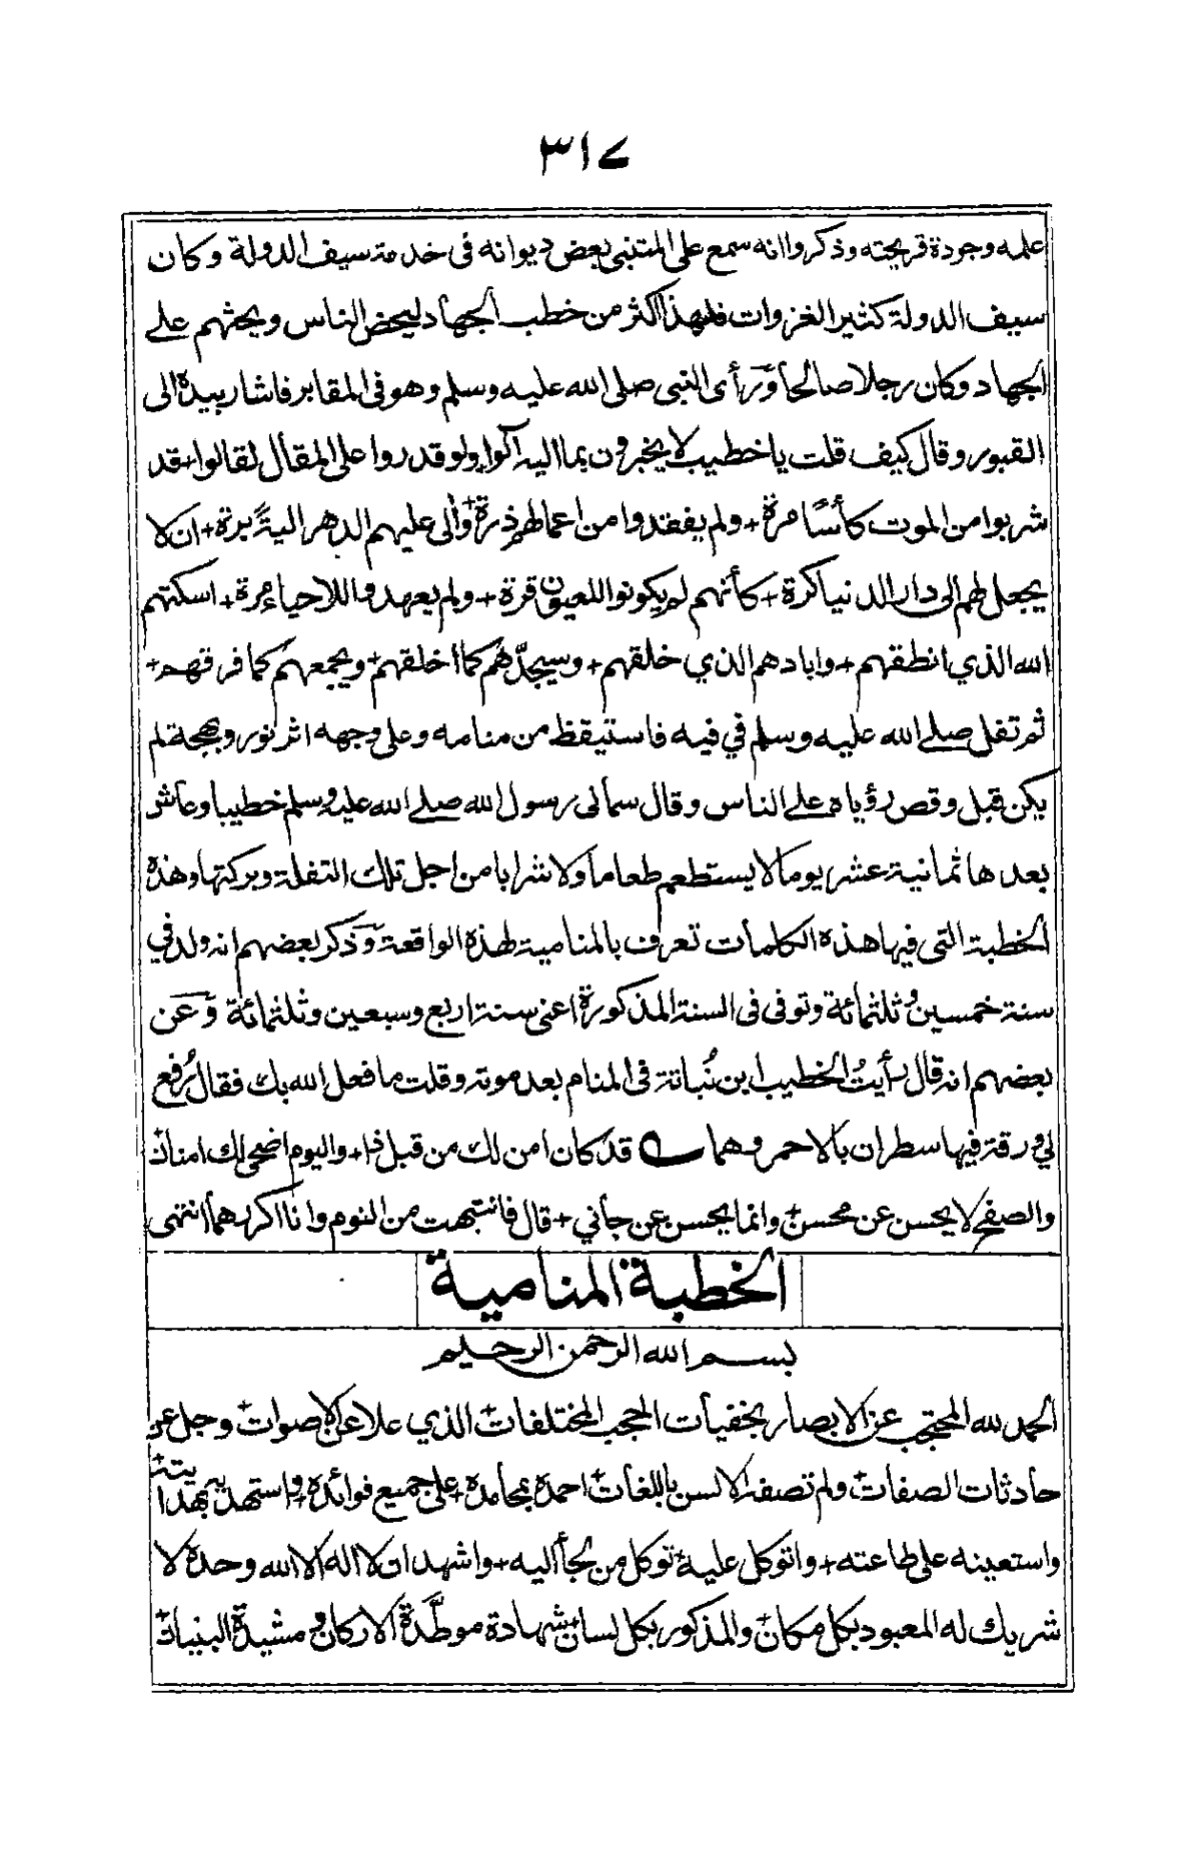 ٣١٧
علمه وجودة قريحته وذكروا انه سمع على المتنبى بعض ديوانه فى خدمة سيف الدولة وكان
سيف الدولة كثير الغزوات فلهذا اكثر من خطب الجهاد ليحض الناس ويحثهم على
الجهاد وكان رجلا صالحا ورأى النبى صلى الله عليه وسلم وهو فى المقابر فاشار بيده الى
القبور وقال كيف قلت يا خطيب لا يخبرون بما اليه آلوا ولو قدروا على المقال لقالوا + قد
شربوا من الموت كأسًا مرة + ولم يفقدوا من اعمالهم ذرة + وآلى عليهم الدهر اليةً برة + ان لا
يجعل لهم الى دار الدنيا كرة + كأنهم لم يكونوا للعيون قرة + ولم يعهدوا للاحياء مرة + اسكتهم
الله الذي انطقهم + وابادهم الذي خلقهم + وسيجدّهم كما اخلقهم + ويجمعهم كما فرقهم +
ثم تفل صلى الله عليه وسلم في فيه فاستيقظ من منامه وعلى وجهه اثر نور وبهجة لم
يكن قبل وقص رؤياه على الناس وقال سمانى رسول الله صلى الله عليه وسلم خطيبا وعاش
بعدها ثمانية عشر يوما لا يستطعم طعاما ولا شرابا من اجل تلك التفلة وبركتها وهذه
الخطبة التى فيها هذه الكلمات تعرف بالمنامية لهذه الواقعة وذكر بعضهم انه ولد في
سنة خمسين وثلثمائة وتوفى فى السنة المذكورة اعنى سنة اربع وسبعين وثلثمائة وعن
بعضهم انه قال رأيتُ الخطيب ابن نُباتة فى المنام بعد موته وقلت ما فعل الله بك فقال رُفع
لي ورقة فيها سطران بالاحمر وهما قد كان امن لك من قبل ذا + واليوم اضحى لك امنان
والصفح لا يحسن عن محسن + وانما يحسن عن جاني + قال فانتبهت من النوم وانا اكررهما انتهى
الخطبة المنامية
بسم الله الرحمن الرحيم
الحمد لله المحتجب عن الابصار بخفيات الحجب المختلفات + الذي علا عن الاصوات + وجل عن
حادثات الصفات + ولم تصفه الالسن باللغات + احمده بمحامده + على جميع فوائده + واستهديه بهدايته +
واستعينه على طاعته + واتوكل عليه توكل من لجأ اليه + واشهد ان لا اله الا الله وحده لا
شريك له المعبود بكل مكان + والمذكور بكل لسان + شهادة موطَّدة الاركان + ومشيدة البنيان +